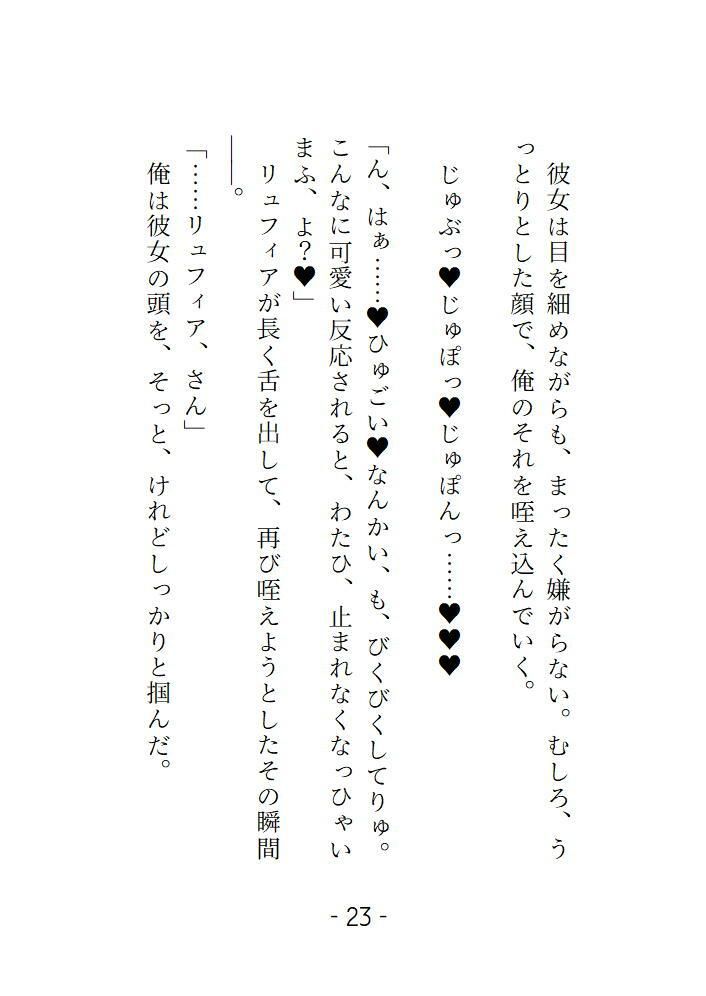 彼女は目を細めながらも、まったく嫌がらない。むしろ、う
っとりとした顔で、俺のそれを咥え込んでいく。
じゅぶっ♥じゅぽっ♥じゅぽんっ……♥♥♥
「ん、はぁ……♥ひゅごい♥なんかい、も、びくびくしてりゅ。
こんなに可愛い反応されると、わたひ、止まれなくなっひゃい
まふ、よ？♥」
リュフィアが長く舌を出して、再び咥えようとしたその瞬間
――。
「……リュフィア、さん」
俺は彼女の頭を、そっと、けれどしっかりと掴んだ。
- 23 -